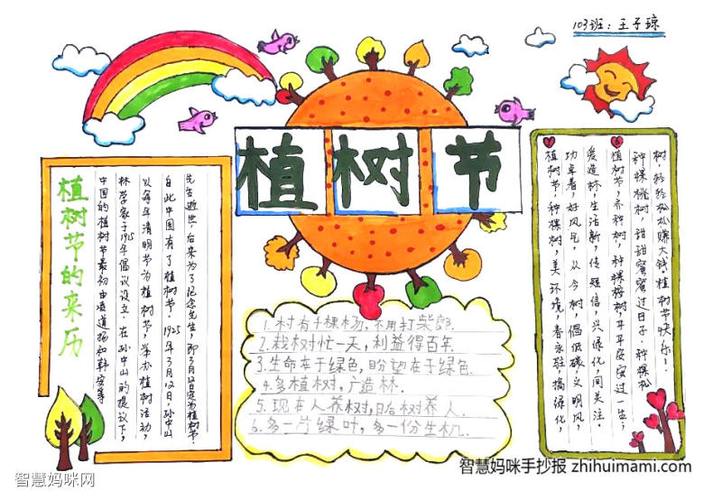 103班：王子琼
植树节
植树节的来历
中国的植树节最初由凌道扬和韩安等
林学家于1915年倡议设立，在孙中山的提议下，
以每年清明节为植树节，举办植树活动，
自此中国有了植树节，1925年3月12日，孙中山
先生逝世，后来为了纪念先生，即3月12日定为植树节
1.村有千棵杨，不用打柴郎。
2.栽树忙一天，利益得百年.
3.生命在于绿色，盼望在于绿色.
4.多植树，广造林.
5.现在人养树，日后树养人.
6.多一片绿叶，多一份生机.
树，轻轻松松赚大钱，植树节快乐！
种棵桃树，甜甜蜜蜜过日子，种棵松
植树节，齐种树，种棵榕树，平平安安过一生；
爱造林，生活新，传短信，兴绿化，同关注。
功率看，好风气，从今树，倡低碳，文明风，
植树节，种棵树，美环境，春来驻，搞绿化，
智慧妈咪网
智慧妈咪手抄报 zhihuimami.com